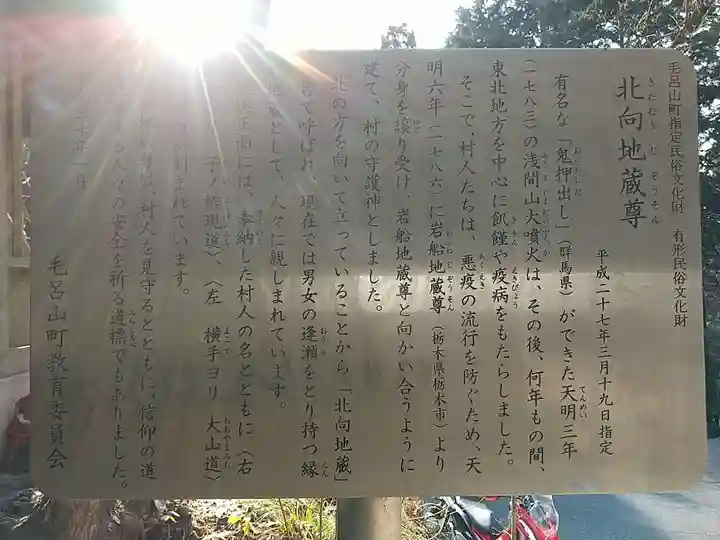 毛呂山町指定民俗文化財　有形民俗文化財
北向地蔵尊
きたむかいじぞうそん
平成二十七年三月十九日指定
有名な「鬼押出し」（群馬県）ができた天明三年
（一七八三）の浅間山大噴火は、その後、何年もの間、
東北地方を中心に飢饉や疫病をもたらしました。
そこで、村人たちは、悪疫の流行を防ぐため、天
明六年（一七八六）に岩船地蔵尊（栃木県栃木市）より
分身を譲り受け、岩船地蔵尊と向かい合うように
建て、村の守護神としました。
北の方を向いて立っていることから「北向地蔵」
て呼ばれ、現在では男女の逢瀬をとり持つ縁
地蔵として、人々に親しまれています。
正面には、奉納した村人の名とともに〈右
子ノ権現道〉、〈左　横手ヨリ　大山道〉
刻されています。
は、村人を見守るとともに、信仰の道
人々の安全を祈る道標でもありました。
十年一月
毛呂山町教育委員会